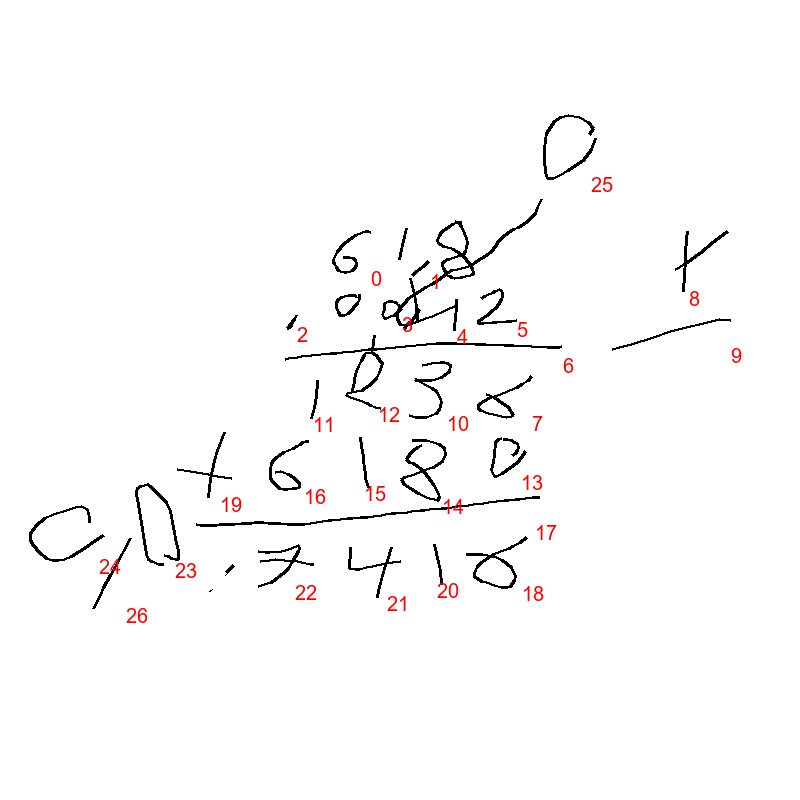 0
25
618
0 1 8
.0 12
2 3 4 5
6 9
1236
11 12 10 7
+ 6180
19 16 15 14 13
0.7416
24 26 23 22 21 20 18 17